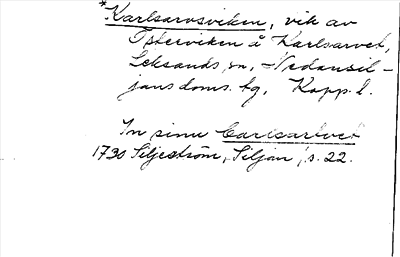 *Karlsarvsviken, vik av
Österviken å Karlsarvet,
Leksands sn, Nedansil-
jans doms. tg, Kopp. l.
In sinu Carlsartvet
1730 Siljeström, Siljan, s. 22.